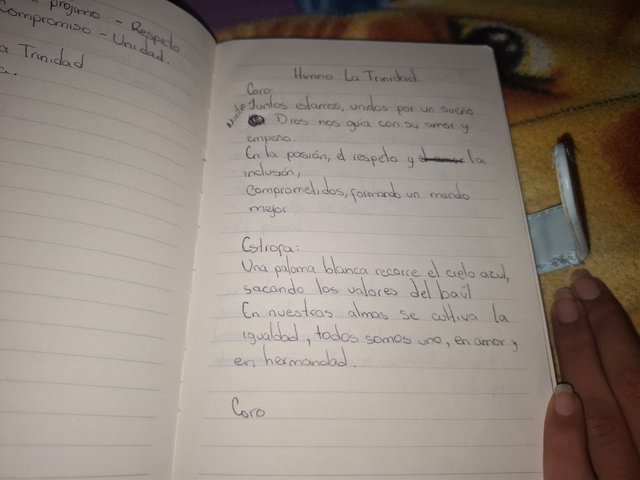 prójimo - Respeto
Compromiso - Unidad.
a Trinidad
a.
Himno La Trinidad.
Coro:
Juntos estamos, unidos por un sueño
Dios nos guia con su amor y
empeño.
En la pasión, el respeto y la
inclusión,
comprometidos, formando un mundo
mejor.
Estrofa:
Una paloma blanca recorre el cielo azul,
sacando los valores del baúl
En nuestras almas se cultiva la
igualdad, todos somos uno, en amor y
en hermandad.
Coro